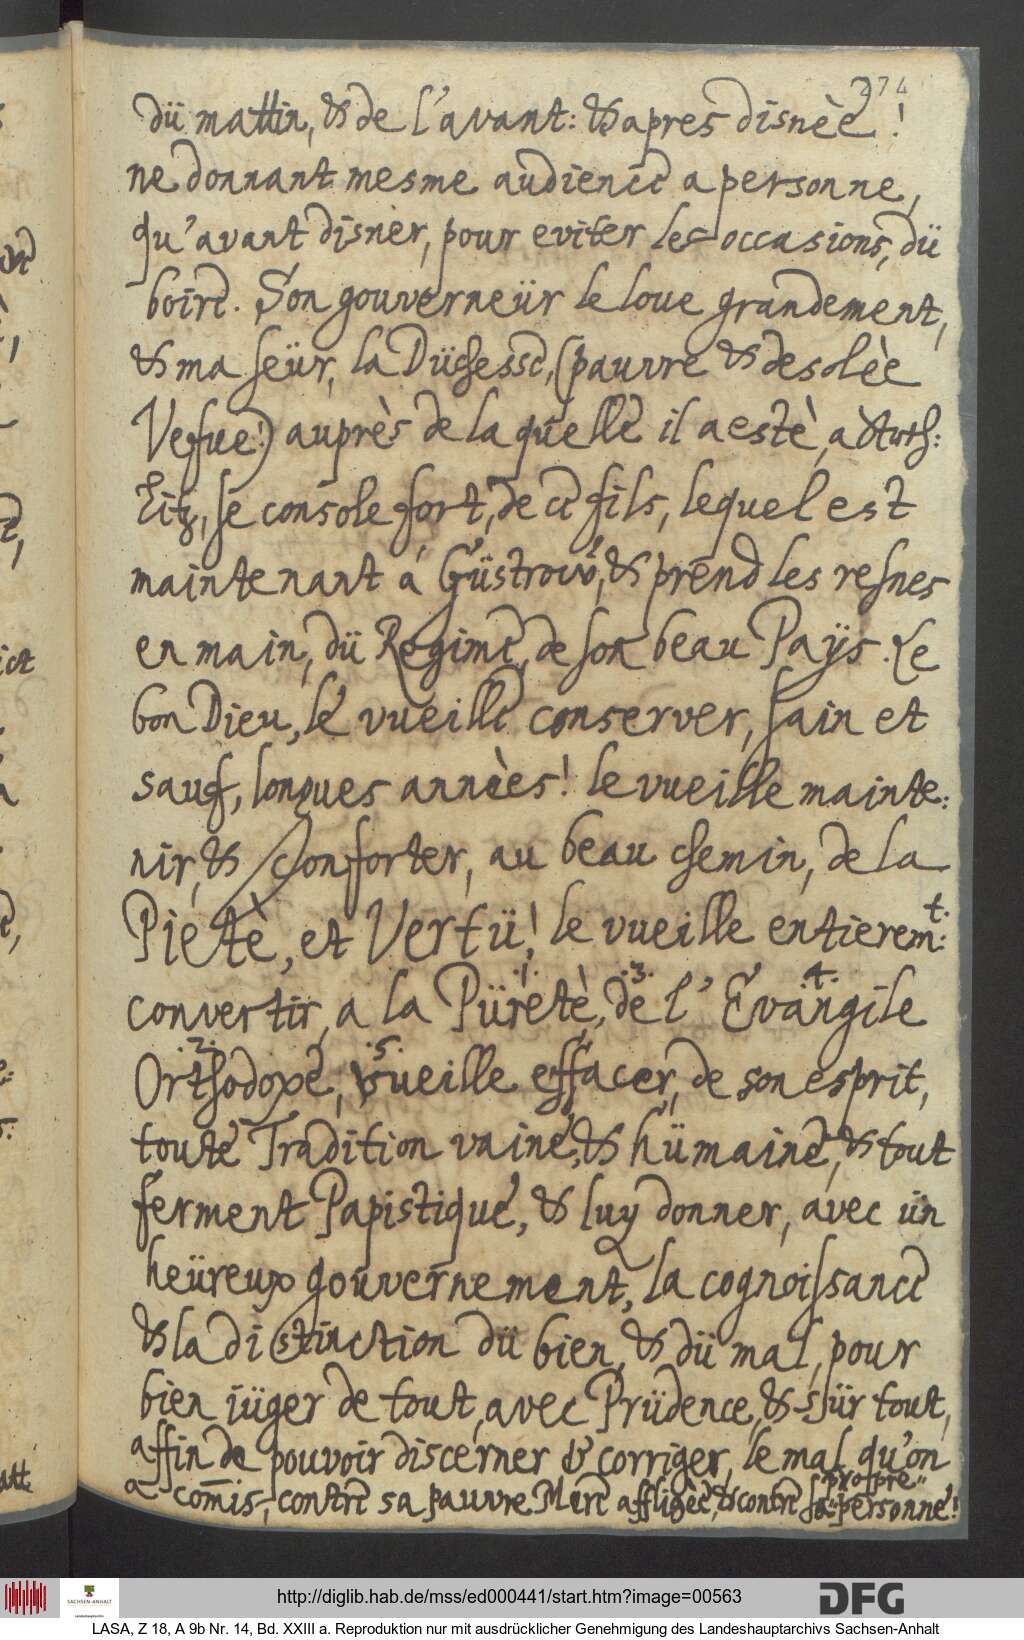 274
dü mattin, & de l'avant: & apres disnèe!
ne donnant mesme audience a personne,
qu'avant disner, pour eviter les occasions, dü
boire. Son gouverneür le loue grandement,
& ma seür, la Düchesse, (pauvre & desolèe
Vefue!) auprès de laquelle il a estè, a Strelitz:
se console fort, de ce fils, lequel est
maintenant a Güstrow, & prend les resnes
en main, dü Regime, de son beau Paÿs. Le
bon Dieu, le vueille conserver, sain et
sauf, longues annèes! le vueille mainte:
nir, & Conforter, au beau chemin, de la
Pietè, et Vertü! le vueille entierem:t.
convertir, a la Püretè, .1. de .3. l'Evangile .4.
Orthodoxe, .2. vueille .5. effacer, de son esprit,
toute Tradition vaine, & hümaine, & tout
ferment Papistique, & luy donner, avec ün
heüreux gouvernement, la cognoissance
& la distinction dü bien, & dü mal, pour
bien iüger de tout, avec Prüdence, & sür tout,
affin de pouvoir discerner & corriger, le mal qu'on
a com̄is, contre sa pauvre Mere affligèe, & contre sa propre personne!
http://diglib.hab.de/mss/ed000441/start.htm?image=00563
SACHSEN-ANHALT
Landeshauptarchiv
DFG
LASA, Z 18, A 9b Nr. 14, Bd. XXIII a. Reproduktion nur mit ausdrücklicher Genehmigung des Landeshauptarchivs Sachsen-Anhalt